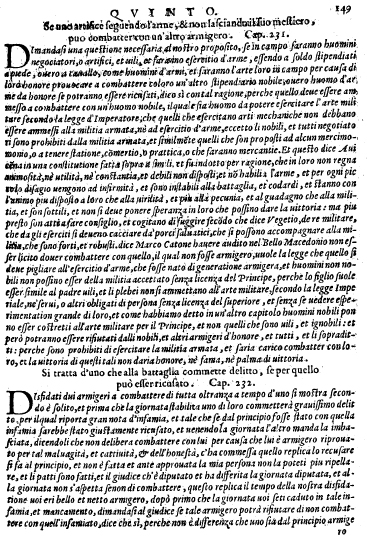 QVINTO. 149
Se uno artifice seguendo l'arme, & non lasciando il suo mestiero,
può combattere con un'altro armigero. Cap. 231.
DImandasi una questione necessaria, al nostro proposito, se in campo saranno huomini
negociatori, o artifici, et uili, et faranno esercitio d'arme, essendo a soldo stipendiati
a piede, ouero a cauallo, come huomini d'armi, et faranno l'arte loro in campo per causa di
loro honore prouocare a combattere coloro un'altro stipendiario nobile, ouero huomo d'ar
me da honore se potranno essere ricusati, dico di cotal ragione, perche quello deue essere am
messo a combattere con un'huomo nobile, il qual e sia huomo da potere esercitare l'arte mili
tare secondo la legge d'Imperatore, che quelli che esercitano arti mechaniche non debbano
essere ammessi alla militia armata, nè ad esercitio d'arme, eccetto li nobili, et tutti negociato
ri sono prohibiti dalla militia armata, et similmente quelli che son proposti ad alcun mercimo
monio, o a tenere statione, commertio, o pratica, o che faranno mercante. Et questo dice Aui
cina in una constitutione fatta sopra a simili, et fu indotto per ragione, che in loro non regna
animosità, nè utilità, nè constantia, et debili non disposti, et no habili à l'arme, et per ogni pic
colo disagio uengono ad infirmità, et sono instabili alla battaglia, et codardi, et stanno con
l'animo piu disposto a loro che alla uirilità, et piu alla pecunia, et al guadagno che alla mili-
tia, et son sottili, et non si deue ponere speranza in loro che possino dare la uittoria: ma piu
presto son atti a far consiglio, et cogitano di fuggire secōdo che dice Vegetio, de re militare,
che da gli eserciti si deueno cacciare da' porci saluatici, che si possono accompagnare alla mi
litia, che sono forti, et robusti. dice Marco Catone hauere audito nel Bello Macedonio non es-
ser licito douer combattere con quello, il qual non fosse armigero, uuole la legge che quello si
deue pigliare all'esercitio d'arme, che fosse nato di generatione armigera, et huomini non no-
bili non possino esser dela militia accettato senza licenza del Principe, perche lo figlio suole
esser simile al padre uili, et li plebei non s'ammettano all'arte militare, secondo la legge Impe
riale, ne serui, o altri obligati di persona senza licenza del superiore, et senza se uedere espe-
rimentation grande di loro, et come habbiamo detto in un'altro capitolo huomini nobili pon
no esser costretti all'arte militare per il Principe, et non quelli che sono uili, et ignobili: et
però potranno essere rifiutati dalli nobili, et altri armigeri d'honore, et tutti, et li sopradit-
ti: perche sono prohibiti di esercitare la militia armata, et saria carico combatter con lo-
ro, et la uittoria di questi tali non daria honore, nè fama, nè palma di uittoria.
Si tratta d'uno che alla battaglia commette delitto, se per quello
può esser ricusato. Cap. 232.
DIsfidati dui armigeri a combattere di tutta oltranza a tempo d'uno si mostra secon-
do è solito, et prima che la giornata stabilita uno di loro commetterà grauissimo delit-
to, per il qual riporta gran nota d'infamia, et tale che se dal principio fosse stato con quella
infamia sarebbe stato giustamente ricusato, et uenendo la giornata l'altro manda la imba-
sciata, dicendoli che non delibera combattere con lui per causa che lui è armigero riproua-
to per tal maluagità, et cattiuità, & dell'honestà, c'ha commessa quello replica lo recusare
si fa al principio, et non è fatta et ante approuata la mia persona non la poteti piu ripella-
re, et li patti sono fatti, et il giudice ch'è diputato et ha differita la giornata diputata, et al-
la giornata non s'aspetta senon di combattere, quello replica il tempo della nostra disfida-
tione uoi eri bello et netto armigero, dopò primo che la giornata uoi seti caduto in tale in-
famia, et mancamento, dimandasi al giudice se tale armigero potrà rifiutare di non combat-
tere con quell'infamiato, dice che si, perche non è differenza che uno sia dal principio armige
ro